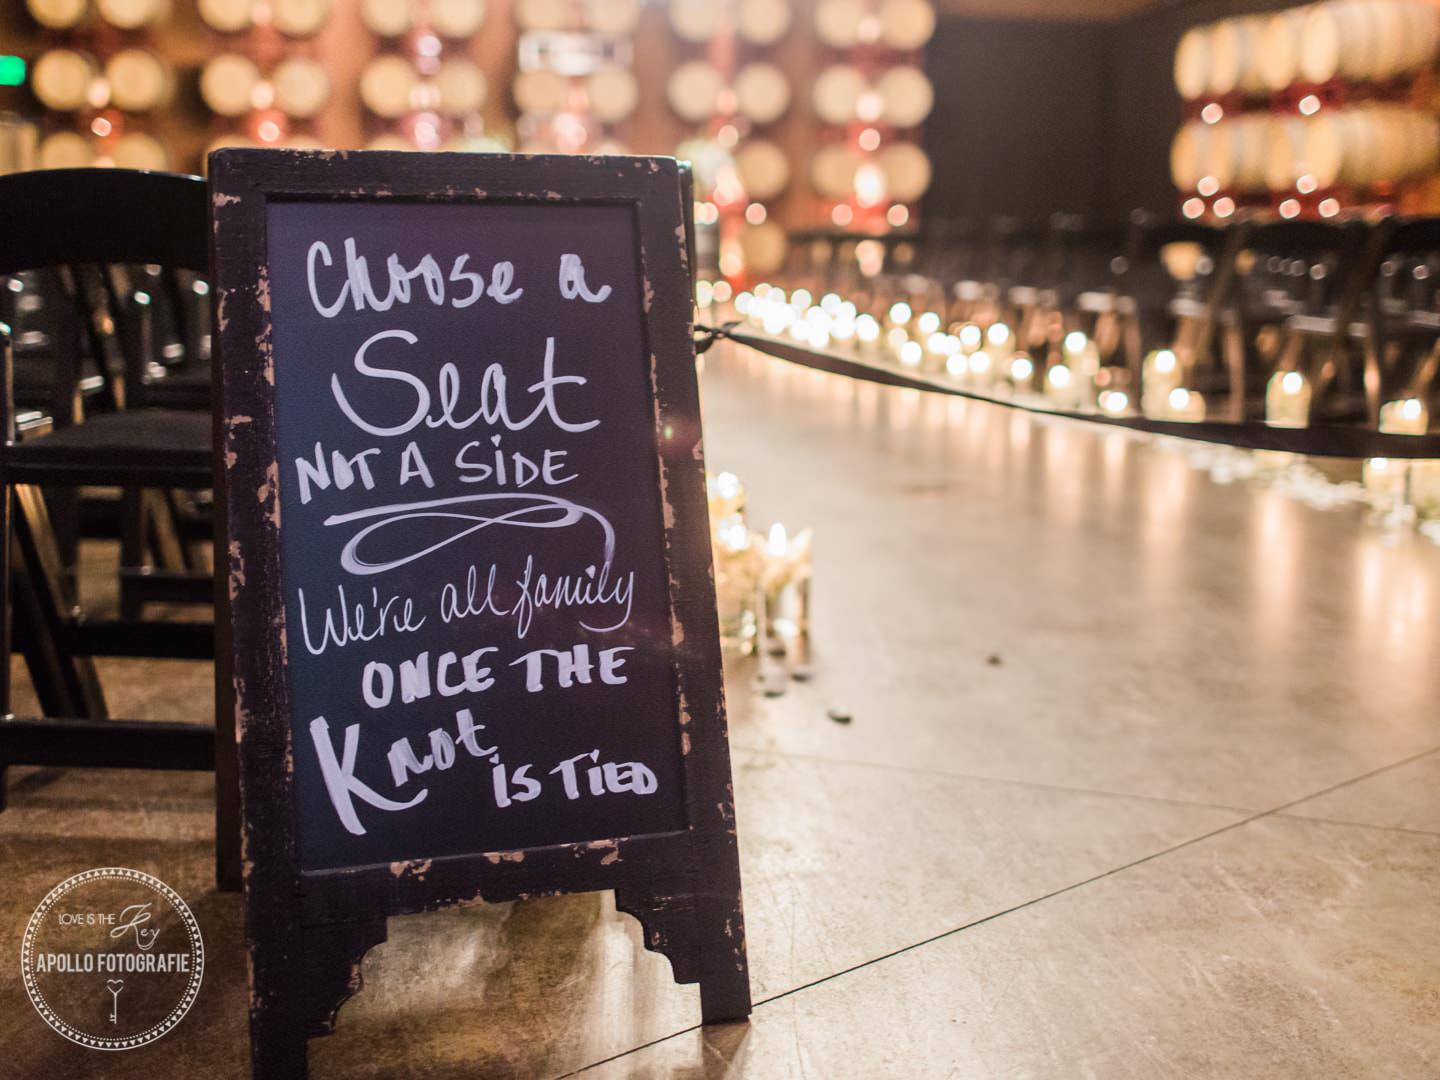 Choose a
Seat
NOT A SIDE
We're all family
ONCE THE
Knot
IS TIED
LOVE IS THE Key
APOLLO FOTOGRAFIE